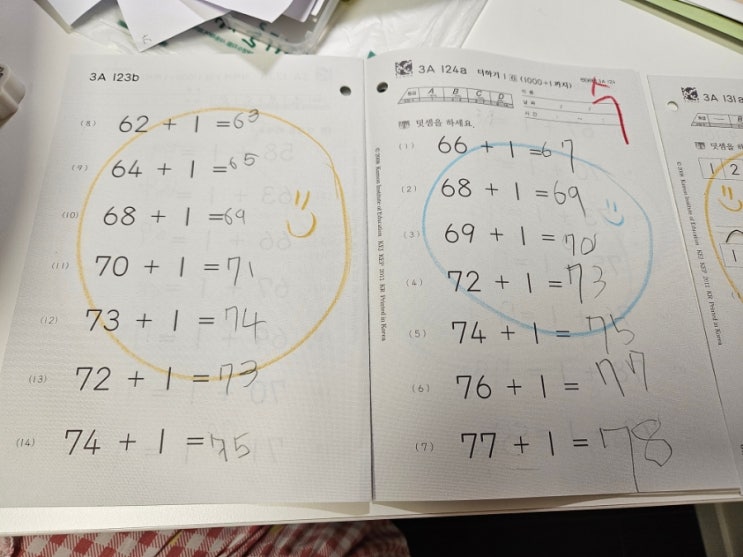 3A 123b
(8) 62 + 1 = 63
(9) 64 + 1 = 65
(10) 68 + 1 = 69
(11) 70 + 1 = 71
(12) 73 + 1 = 74
(13) 72 + 1 = 73
(14) 74 + 1 = 75
3A 124a 더하기 1 ⑥ (1000+1까지)
A B C D
이름
날짜 / /
시간 : ~ :
덧셈을 하세요.
(1) 66 + 1 = 67
(2) 68 + 1 = 69
(3) 69 + 1 = 70
(4) 72 + 1 = 73
(5) 74 + 1 = 75
(6) 76 + 1 = 77
(7) 77 + 1 = 78
© 2008 Kumon Institute of Education KIE KEP 2012 KR Printed in Korea
3A 131a
덧셈을 하
1 2
1
© 2008 Kumon Institute of Education KIE KEP 2012 KR Printed in Korea